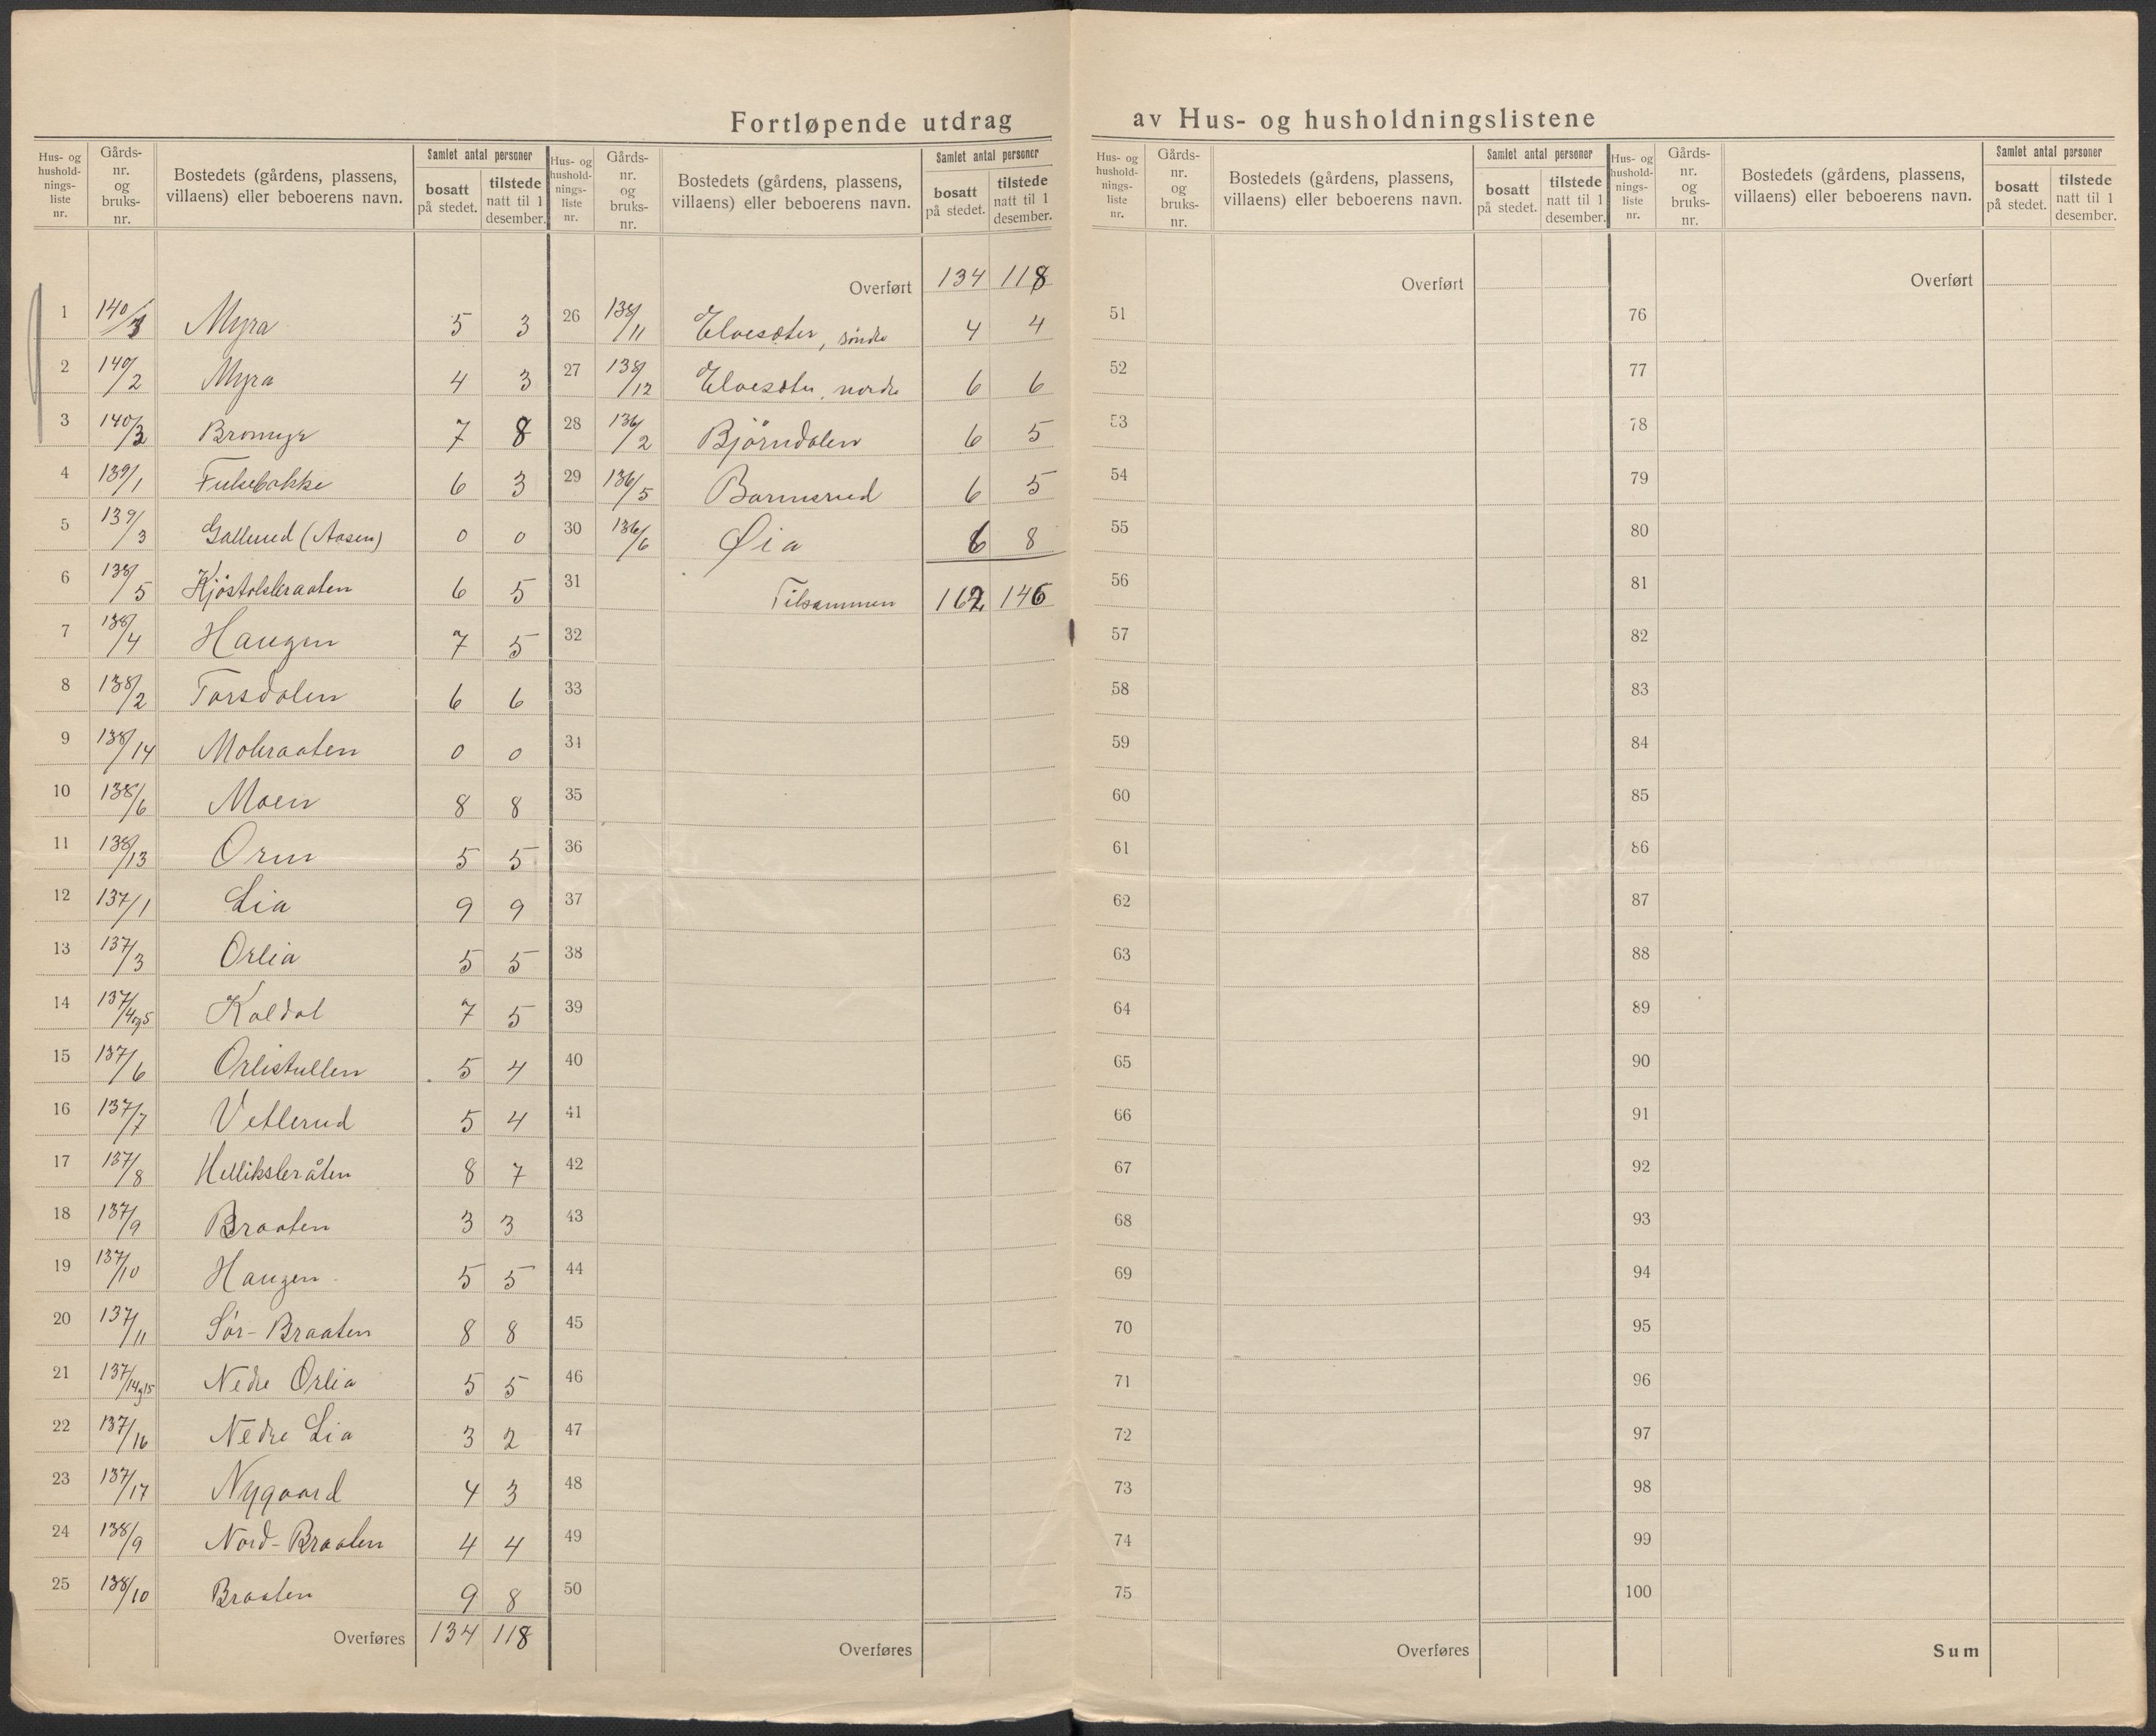 Fortløpende utdrag av Hus- og husholdningslistene
Hus- og hushold-nings-liste nr. Gårds-nr. og bruks-nr. Bostedets (gårdens, plassens, villaens) eller beboerens navn. Samlet antal personer bosatt på stedet. tilstede natt til 1 desember.
1 140/3 Myra 5 3
2 140/2 Myra 4 3
3 140/3 Bromyr 7 8
4 139/1 Fulsebakke 6 3
5 139/3 Gallerud (Aasen) 0 0
6 138/5 Kjøstolsbraaten 6 5
7 138/4 Haugen 7 5
8 138/2 Torsdalen 6 6
9 138/14 Mobraaten 0 0
10 138/6 Moen 8 8
11 138/13 Oren 5 5
12 137/1 Lia 9 9
13 137/3 Orlia 5 5
14 137/4og5 Koldal 7 5
15 137/6 Orlistullen 5 4
16 137/7 Vetlerud 5 4
17 137/8 Helliksbråten 8 7
18 137/9 Braaten 3 3
19 137/10 Haugen 5 5
20 137/11 Sør-Braaten 8 8
21 137/14og15 Nedre Orlia 5 5
22 137/16 Nedre Lia 3 2
23 137/17 Nygaard 4 3
24 138/9 Nord-Braaten 4 4
25 138/10 Braaten 9 8
Overføres 134 118
Hus- og hushold-nings-liste nr. Gårds-nr. og bruks-nr. Bostedets (gårdens, plassens, villaens) eller beboerens navn. Samlet antal personer bosatt på stedet. tilstede natt til 1 desember.
Overført 134 118
26 138/11 Elvesæter, søndre 4 4
27 138/12 Elvesæter, nordre 6 6
28 136/2 Bjørndalen 6 5
29 136/5 Barmsrud 6 5
30 136/6 Øia 6 8
31 Tilsammen 162 146
32
33
34
35
36
37
38
39
40
41
42
43
44
45
46
47
48
49
50
Overføres
Hus- og hushold-nings-liste nr. Gårds-nr. og bruks-nr. Bostedets (gårdens, plassens, villaens) eller beboerens navn. Samlet antal personer bosatt på stedet. tilstede natt til 1 desember.
Overført
51
52
53
54
55
56
57
58
59
60
61
62
63
64
65
66
67
68
69
70
71
72
73
74
75
Overføres
Hus- og hushold-nings-liste nr. Gårds-nr. og bruks-nr. Bostedets (gårdens, plassens, villaens) eller beboerens navn. Samlet antal personer bosatt på stedet. tilstede natt til 1 desember.
Overført
76
77
78
79
80
81
82
83
84
85
86
87
88
89
90
91
92
93
94
95
96
97
98
99
100
Sum